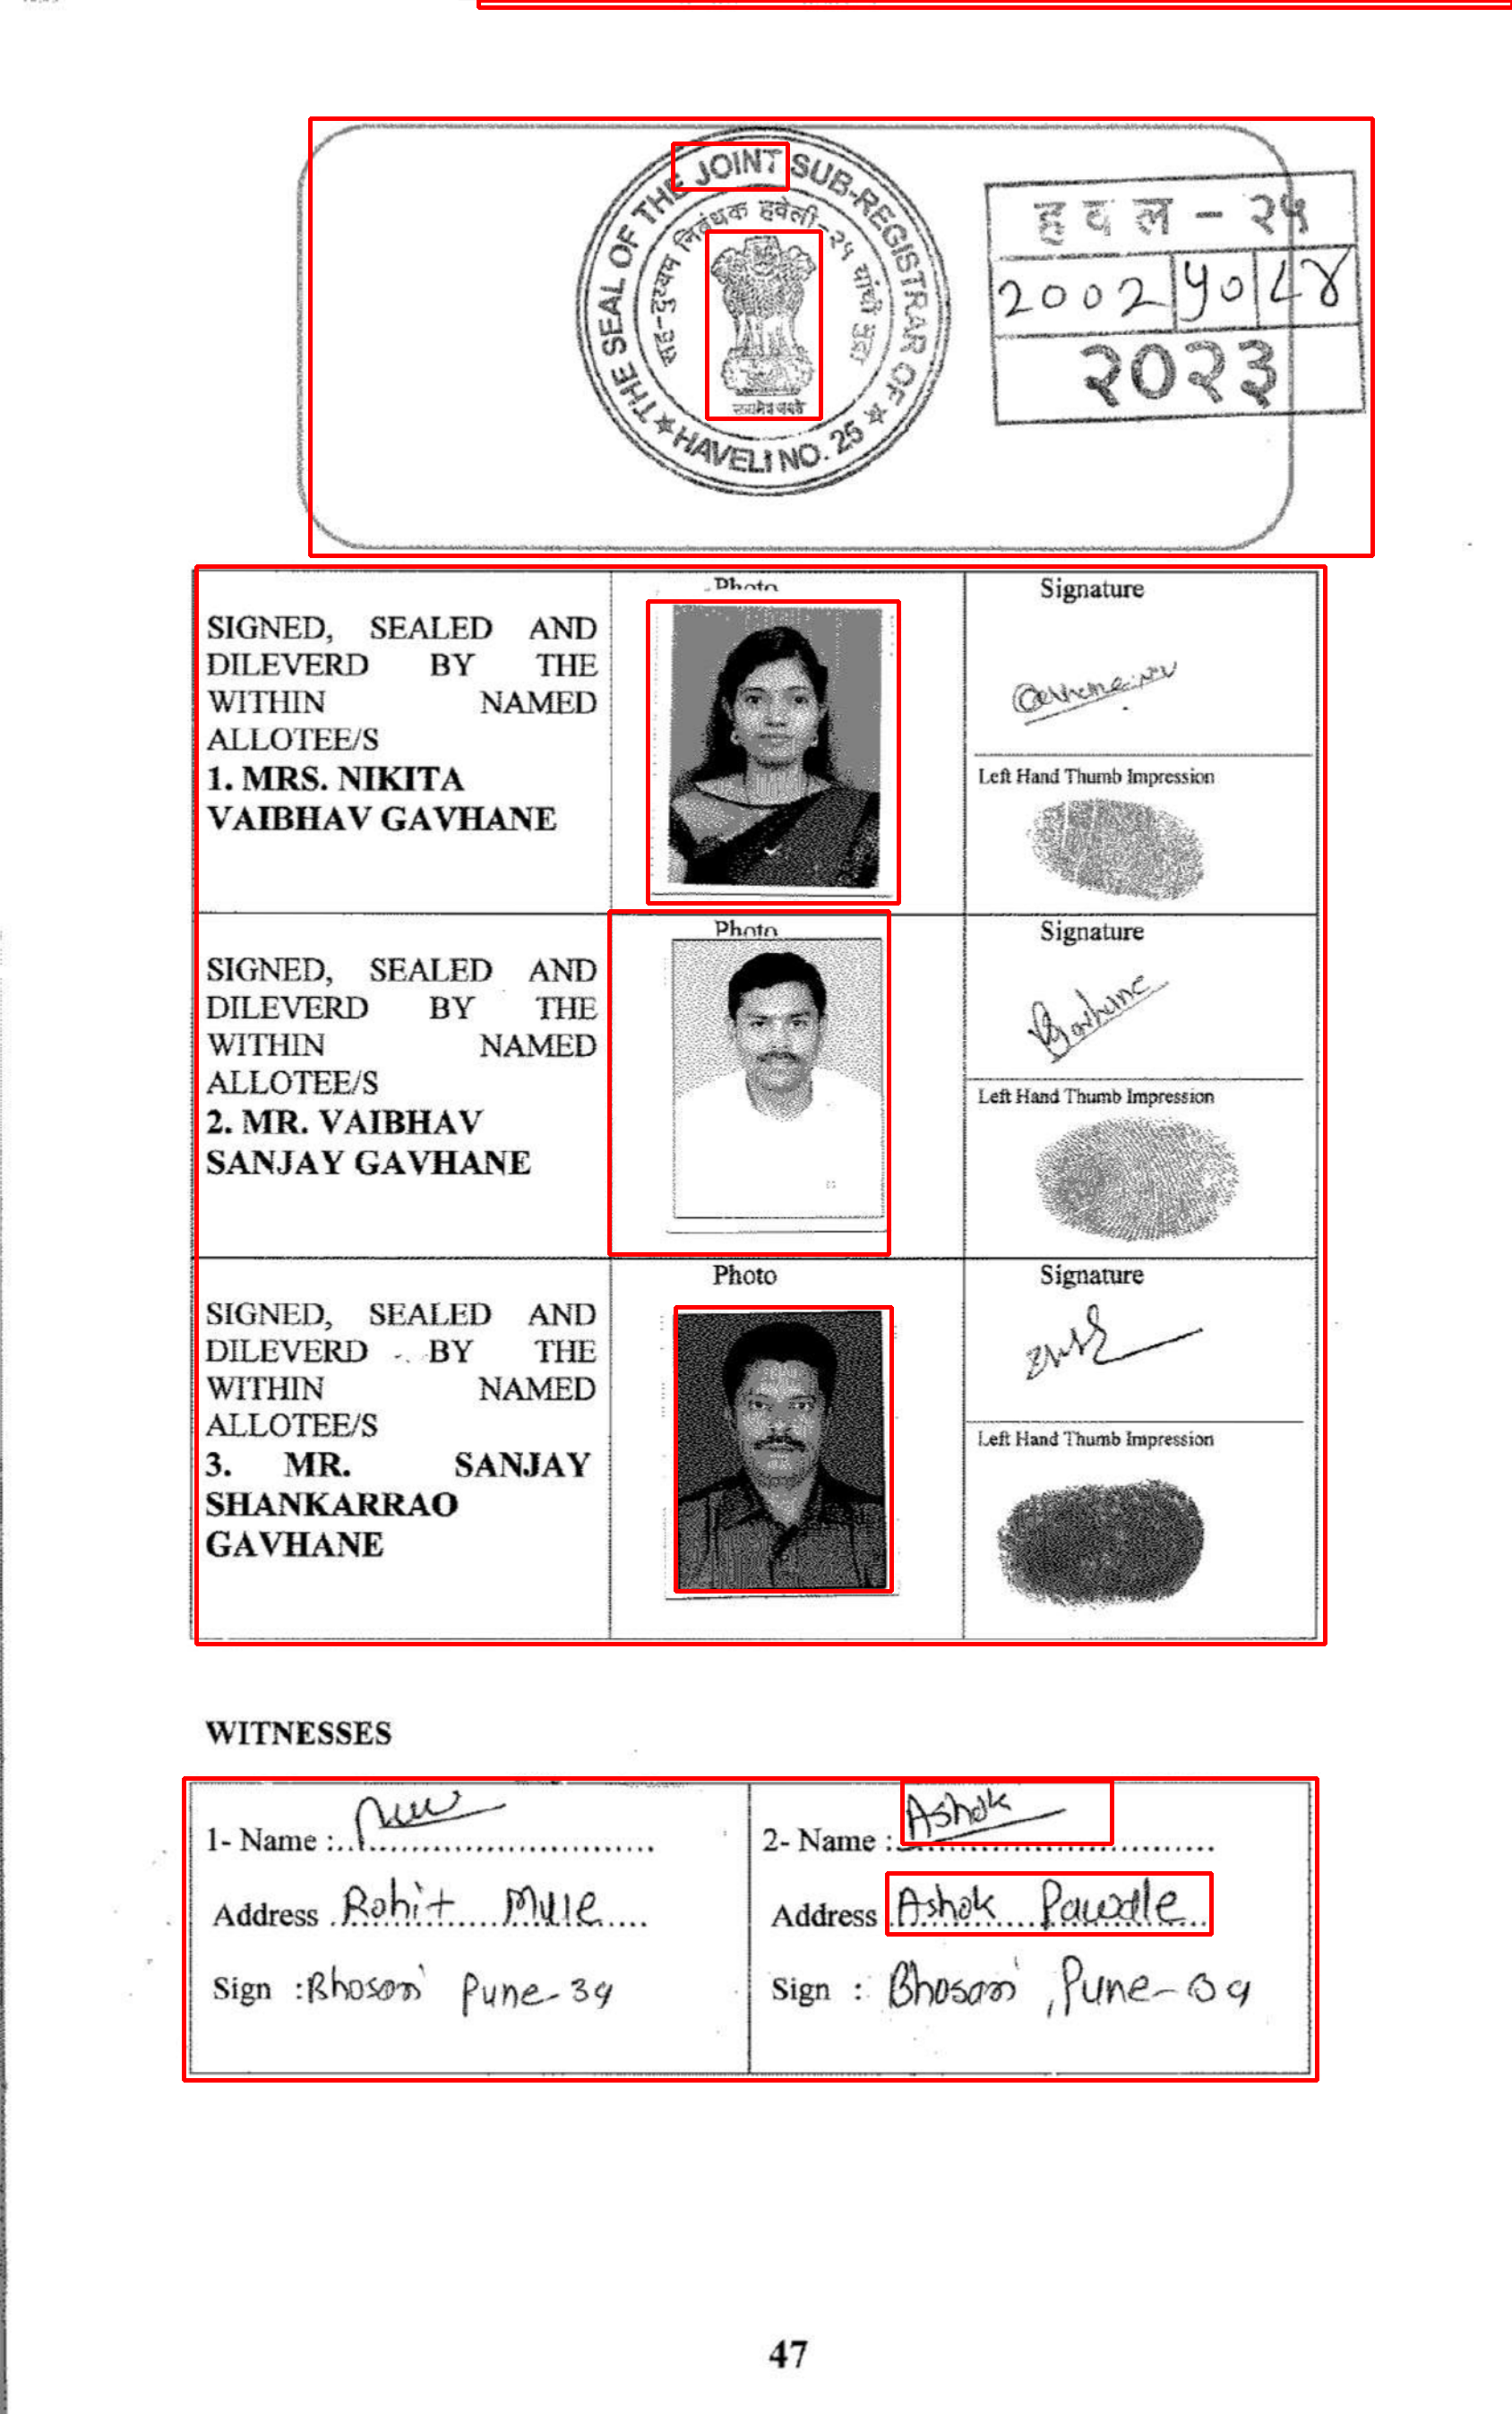 THE SEAL OF THE JOINT SUB-REGISTRAR OF
HAVELI NO. 25
सह-दुय्यम निबंधक हवेली-२५ यांची मुद्रा
सत्यमेव जयते
हवल - २५
2002 ५० ८४
२०२३
SIGNED, SEALED AND
DILEVERD BY THE
WITHIN NAMED
ALLOTEE/S
1. MRS. NIKITA
VAIBHAV GAVHANE
Photo
Signature
Left Hand Thumb Impression
SIGNED, SEALED AND
DILEVERD BY THE
WITHIN NAMED
ALLOTEE/S
2. MR. VAIBHAV
SANJAY GAVHANE
Photo
Signature
Left Hand Thumb Impression
SIGNED, SEALED AND
DILEVERD BY THE
WITHIN NAMED
ALLOTEE/S
3. MR. SANJAY
SHANKARRAO
GAVHANE
Photo
Signature
Left Hand Thumb Impression
WITNESSES
1- Name :
Address Rohit Mule
Sign : Bhosari Pune-39
2- Name : Ashok
Address Ashok
Sign : Bhosari, Pune-39
47